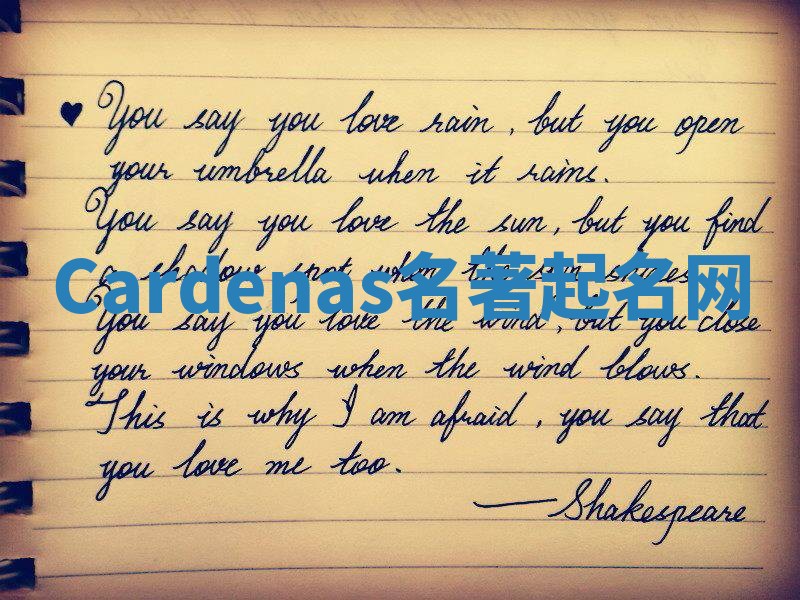 ♥ You say you love rain, but you open
your umbrella when it rains.
You say you love the sun, but you find
a shadow spot when the sun shines.
Cardenas名著起名网
You say you love the wind, but you close
your windows when the wind blows.
This is why I am afraid, you say that
you love me too.
— Shakespeare